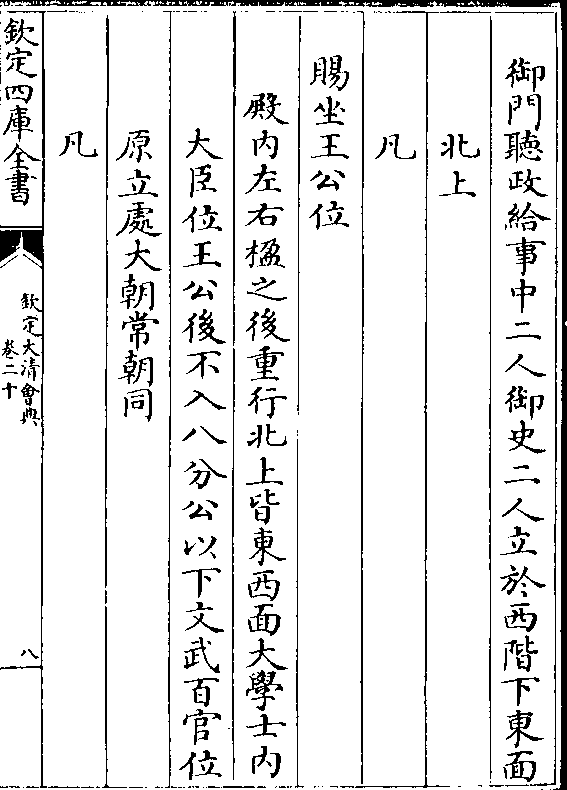 御門聽政給事中二人御史二人立於西階下東面
北上
凡
賜坐王公位
殿内左右楹之後重行北上皆東西面大學士内
大臣位王公後不入八分公以下文武百官位
原立處大朝常朝同
凡
欽定四庫全書
欽定大清會典
卷二十
八